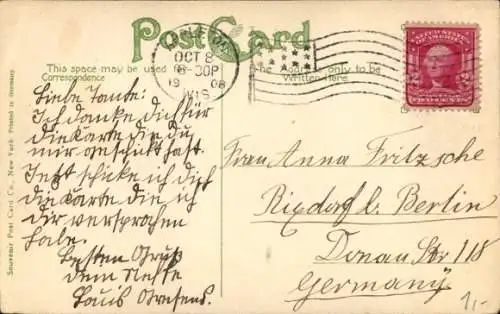 Post Card
This space may be used for
Correspondence
The Address only to be
Written Here.
APPLETON
OCT 8
8-30P
19 08
WIS
Souvenir Post Card Co., New York Printed in Germany.
Liebe Tante:
Ich danke dich für
die Karte die du
mir geschikt hast.
Jetzt schicke ich dich
die Karte die ich
dir versprachen
habe.
Besten Gruß
dem Neffe
Louis
Frau Anna Fritzsche
Rixdorf b. Berlin
Donau Str 118
Germany
1,-